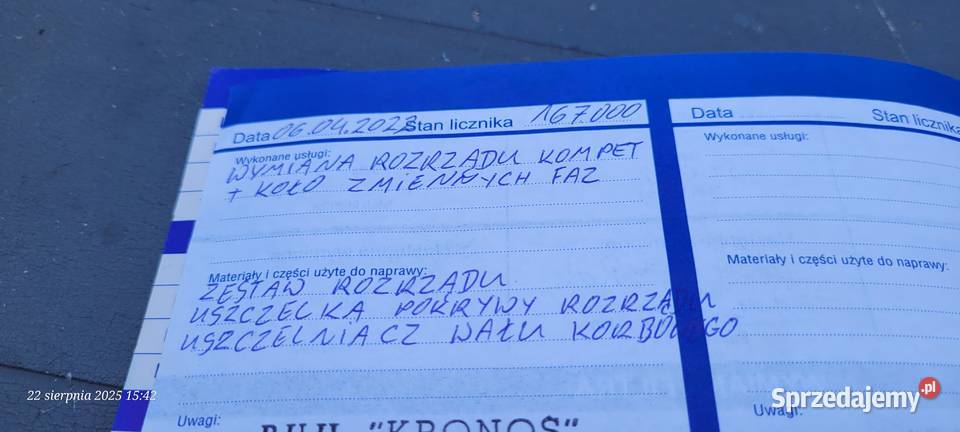 Data 06.04.2023 Stan licznika 167000
Wykonane usługi:
WYMIANA ROZRZĄDU KOMPET
+ KOŁO ZMIENNYCH FAZ
Materiały i części użyte do naprawy:
ZESTAW ROZRZĄDU
USZCZELKA POKRYWY ROZRZĄDU
USZCZELNIACZ WAŁU KORBOWEGO
Uwagi:
"KRONOS"
Data Stan licznika
Wykonane usługi:
Materiały i części użyte do naprawy:
Uwagi:
22 sierpnia 2025 15:42
Sprzedajemy.pl